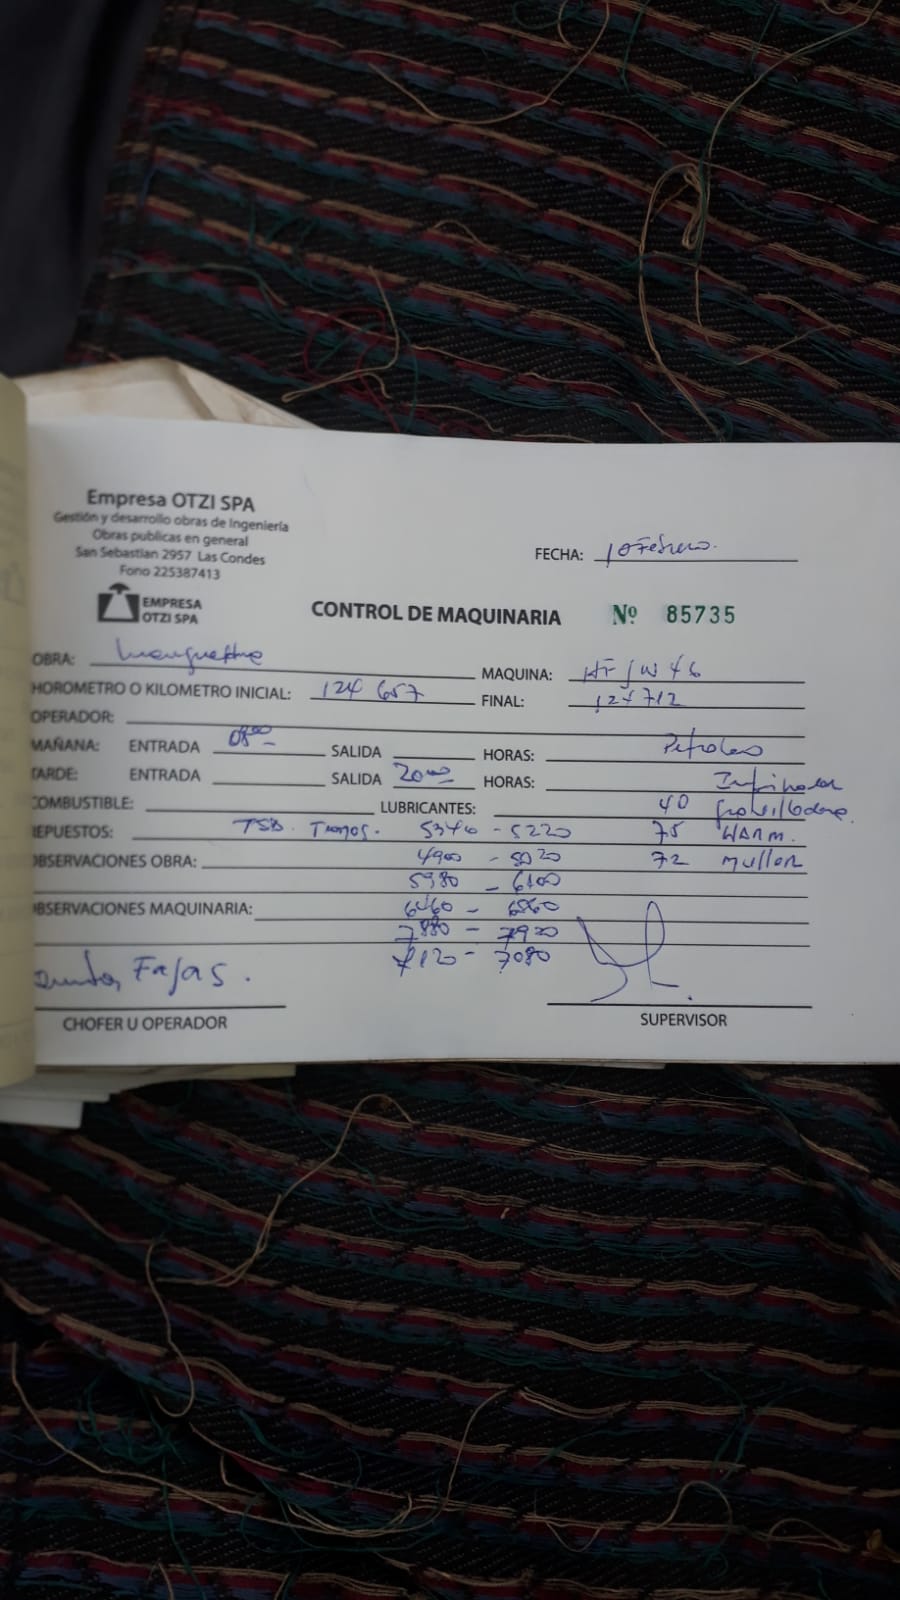 Empresa OTZI SPA
Gestión y desarrollo obras de Ingeniería
Obras publicas en general
San Sebastian 2957 Las Condes
Fono 225387413
EMPRESA
OTZI SPA
FECHA: 10 Febrero.
CONTROL DE MAQUINARIA Nº 85735
OBRA:
MAQUINA:
HOROMETRO O KILOMETRO INICIAL: 124 657 FINAL: 124712
OPERADOR:
MAÑANA: ENTRADA 0800 SALIDA HORAS: Petroleo
TARDE: ENTRADA SALIDA 2000 HORAS:
COMBUSTIBLE: LUBRICANTES: 40
REPUESTOS: TSB. Tramos. 5340 - 5220 75
OBSERVACIONES OBRA: 4900 - 5020 72
5980 - 6100
OBSERVACIONES MAQUINARIA: 6460 -
7880 - 7920
7120 - 7080
Fajas.
CHOFER U OPERADOR
SUPERVISOR